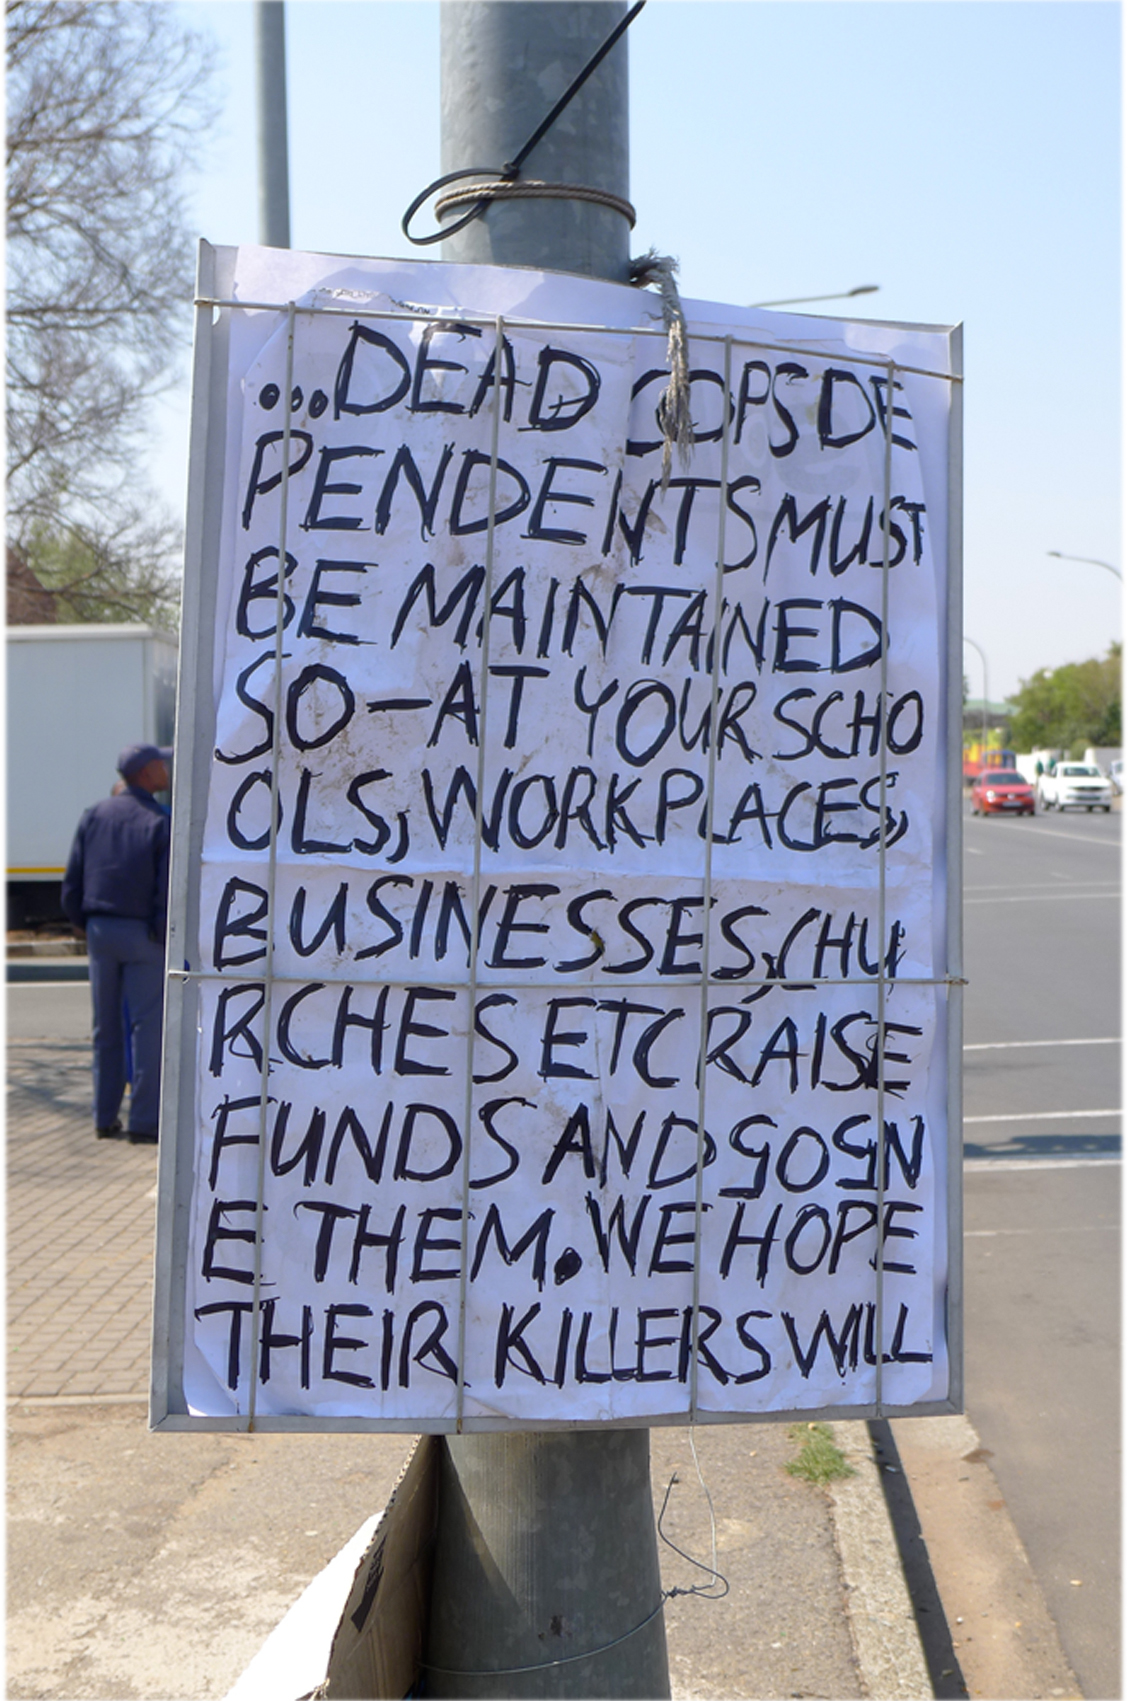 ...DEAD COPS DE
PENDENTS MUST
BE MAINTAINED
SO-AT YOUR SCHO
OLS, WORKPLACES,
BUSINESSES, CHU
RCHES ETC RAISE
FUNDS AND GOGN
E THEM. WE HOPE
THEIR KILLERS WILL